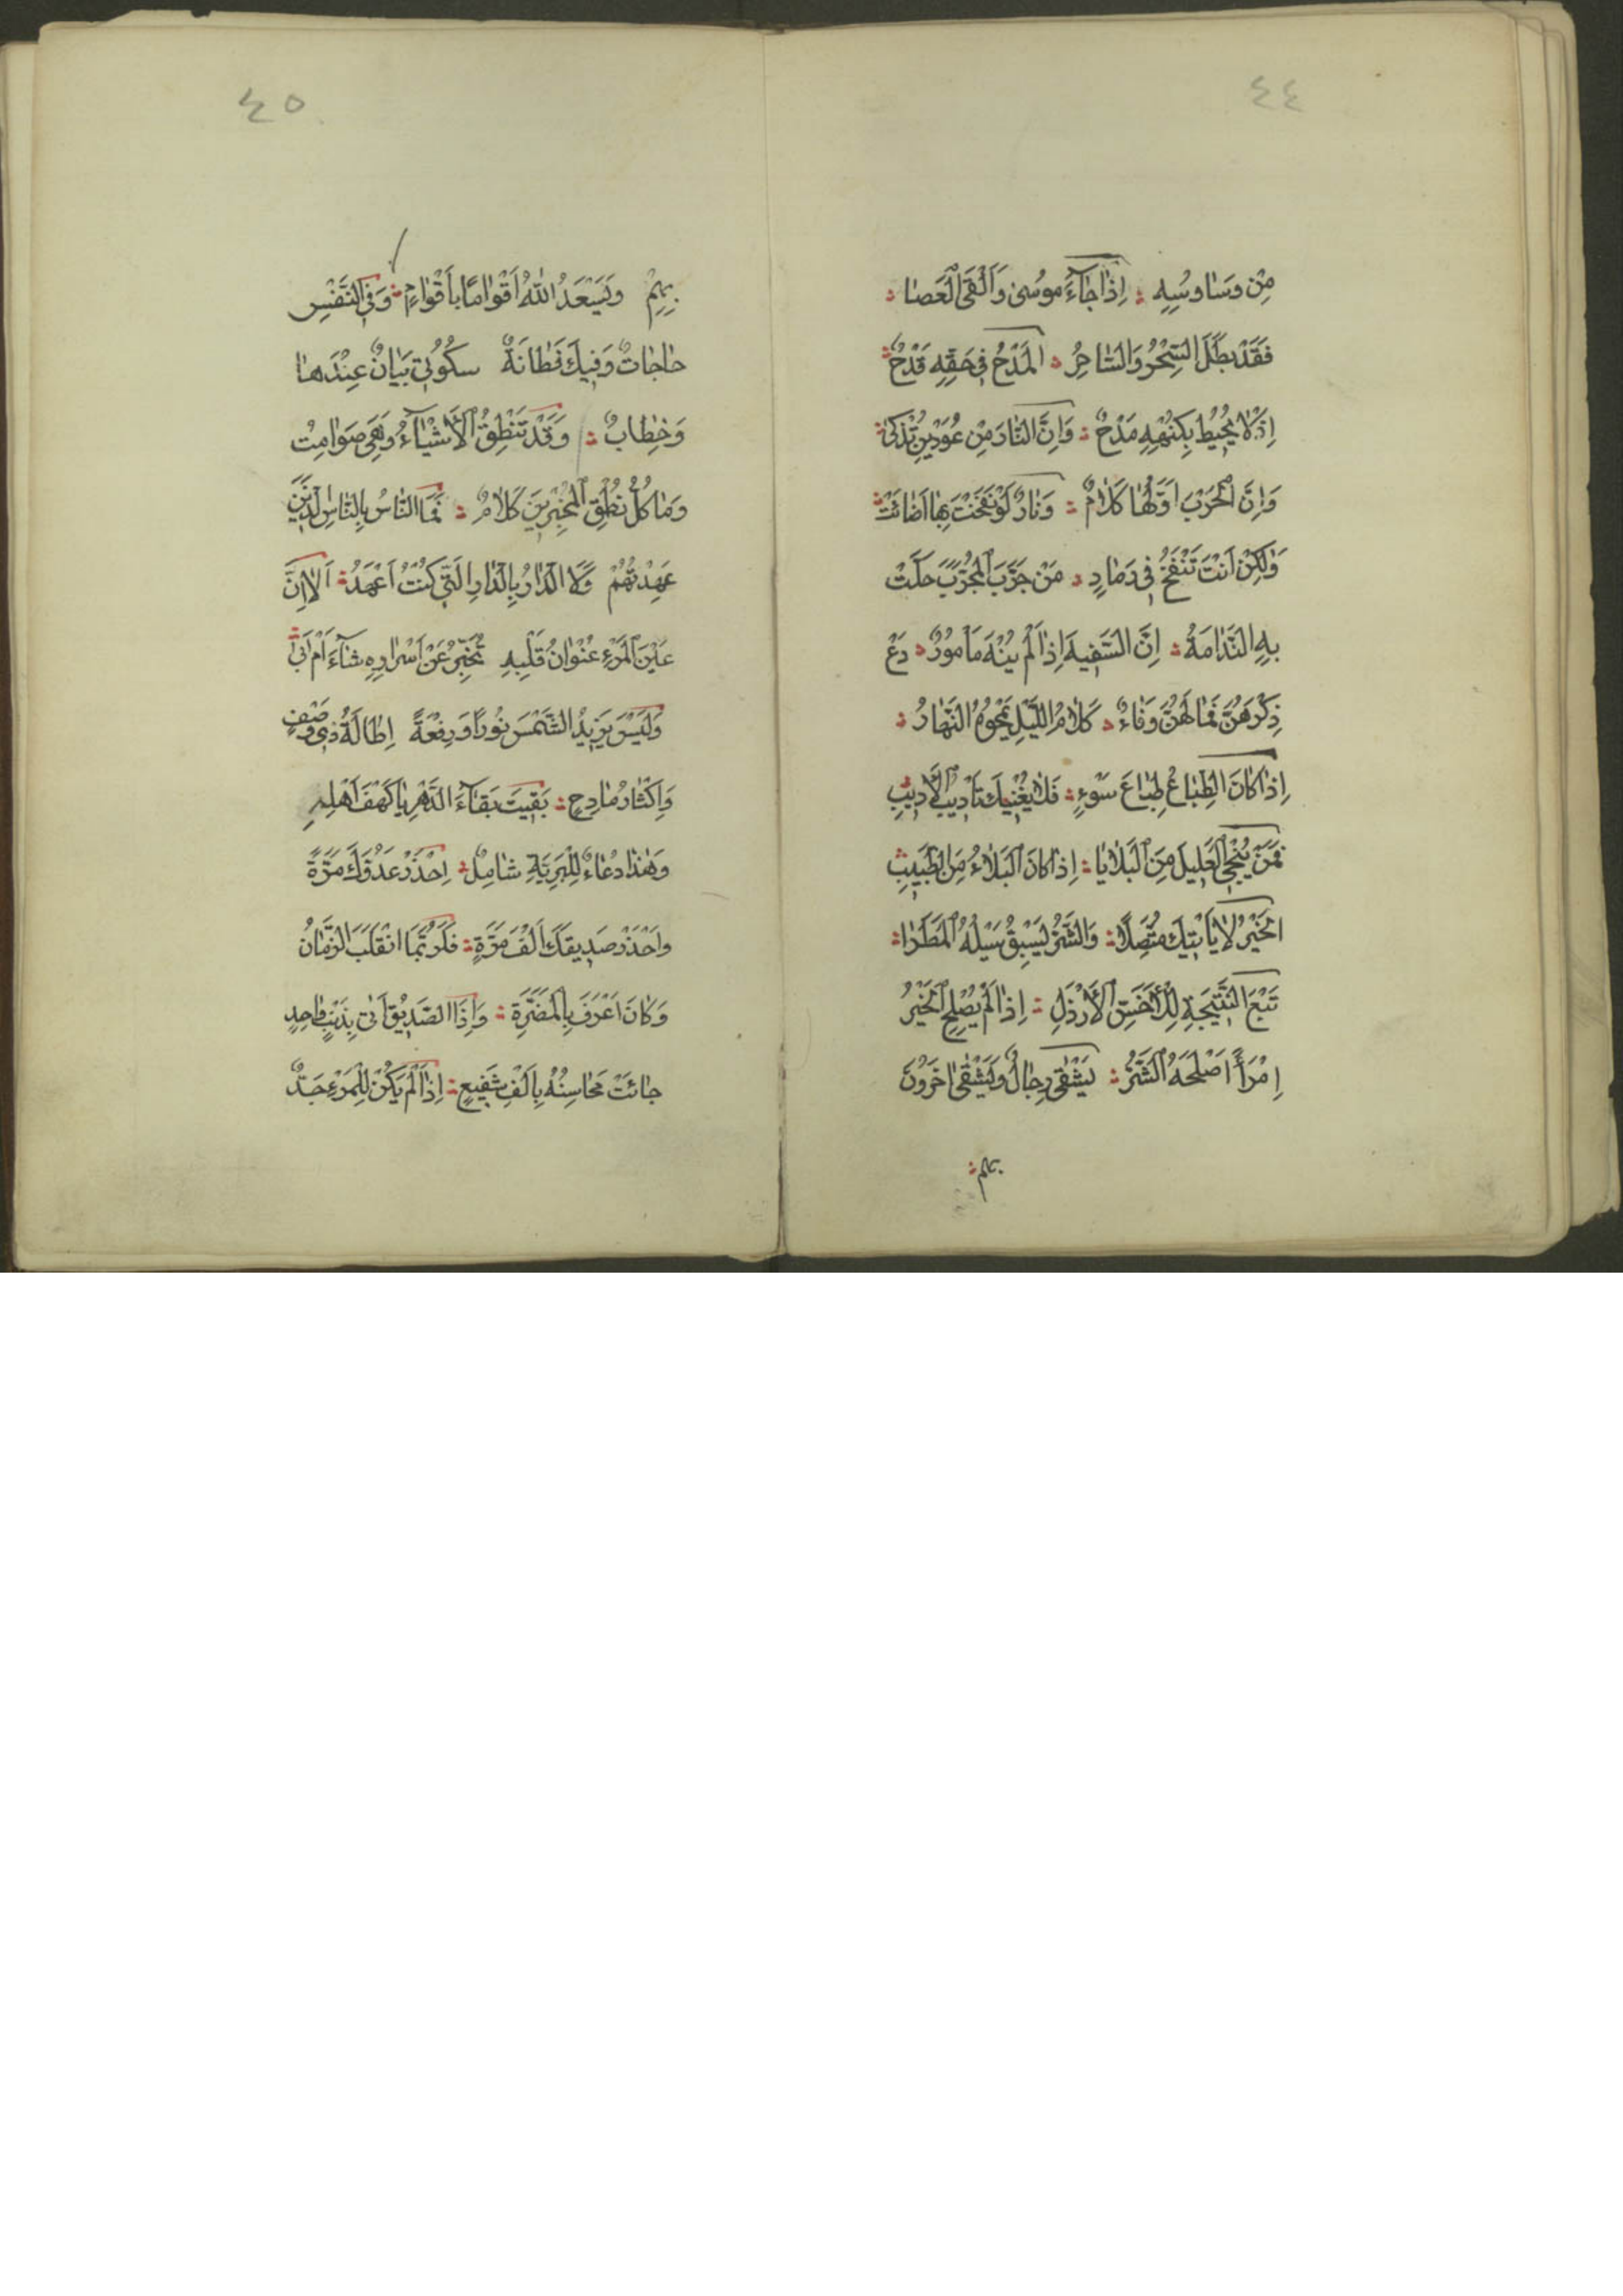 ٤٤
مِنْ وَسَاوِسِهِ ؞ اِذَا جَاءَ مُوسٰى وَاَلْقَى الْعَصَا ؞
فَقَدْ بَطَلَ السِّحْرُ وَالسَّاحِرُ ؞ اَلْمَدْحُ فِى حَقِّهِ قَدْحٌ ؞
اِذْ لَا يُحِيْطُ بِكُنْهِهِ مَدْحٌ ؞ وَاِنَّ النَّارَ مِنْ عُوْدَيْنِ تُذْكٰى ؞
وَاِنَّ الْحَرْبَ اَوَّلُهَا كَلَامٌ ؞ وَنَارٌ لَوْ نَفَخْتَ بِهَا اَضَائَتْ ؞
وَلٰكِنْ اَنْتَ تَنْفَخُ فِى رَمَادٍ ؞ مَنْ جَرَّبَ الْمُجَرَّبَ حَلَّتْ
بِهِ النَّدَامَةُ ؞ اِنَّ السَّفِيهَ اِذَا لَمْ يُنْهَ مَأْمُورٌ ؞ دَعْ
ذِكْرَهُنَّ فَمَا لَهُنَّ وَفَاءٌ ؞ كَلَامُ اللَّيْلِ يَمْحُوهُ النَّهَارُ ؞
اِذَا كَانَ الطِّبَاعُ طِبَاعَ سَوْءٍ ؞ فَلَا يُغْنِيكَ تَأْدِيبُ الْاَدِيبِ
فَمَنْ يُنْجِى الْعَلِيلَ مِنَ الْبَلَايَا ؞ اِذَا كَانَ الْبَلَاءُ مِنَ الطَّبِيبِ
اَلْخَيْرُ لَا يَأْتِيكَ مُتَّصِلًا ؞ وَالشَّرُّ يَسْبِقُ سَيْلُهُ الْمَطَرَا ؞
تَتْبَعُ النَّتِيجَةُ لِلْاَخَسِّ الْاَرْذَلِ ؞ اِذَا لَمْ يُصْلِحِ الْخَيْرُ
اِمْرَأً اَصْلَحَهُ الشَّرُّ ؞ يَشْقٰى رِجَالٌ وَيَشْقٰى اٰخَرُوْنَ
بهم ؞
٤٥
بِهِمْ وَيُسْعَدُ اللّٰهُ اَقْوَامًا بِاَقْوَامٍ ؞ وَفِى النَّفْسِ
حَاجَاتٌ وَفِيكَ فَطَانَةٌ سُكُوْتِى بَيَانٌ عِنْدَهَا
وَخِطَابٌ ؞ وَقَدْ تَنْطِقُ الْاَشْيَاءُ وَهِىَ صَوَامِتْ
وَمَا كُلُّ نُطْقِ الْمُخْبِرِيْنَ كَلَامٌ ؞ فَمَا النَّاسُ بِالنَّاسِ الَّذِيْنَ
عَهِدْتُهُمْ وَلَا الدَّارُ بِالدَّارِ الَّتِى كُنْتُ اَعْهَدُ ؞ اَلَا اِنَّ
عَيْنَ الْمَرْءِ عُنْوَانُ قَلْبِهِ تُخَبِّرُ عَنْ اَسْرَارِهِ شَاءَ اَمْ اَبٰى ؞
وَلَيْسَ يَزِيدُ الشَّمْسَ نُوْرًا وَرِفْعَةً اِطَالَةُ ذِى وَصْفٍ
وَاِكْثَارُ مَادِحٍ ؞ بَقِيتَ بَقَاءَ الدَّهْرِ يَا كَهْفَ اَهْلِهِ
وَهٰذَا دُعَاءٌ لِلْبَرِيَّةِ شَامِلٌ ؞ اِحْذَرْ عَدُوَّكَ مَرَّةً
وَاحْذَرْ صَدِيقَكَ اَلْفَ مَرَّةٍ ؞ فَلَرُبَّمَا انْقَلَبَ الزَّمَانُ
وَكَانَ اَعْرَفَ بِالْمَضَرَّةِ ؞ وَاِذَا الصَّدِيْقُ اَتٰى بِذَنْبٍ وَاحِدٍ
جَائَتْ مَحَاسِنُهُ بِاَلْفِ شَفِيعٍ ؞ اِذَا لَمْ يَكُنْ لِلْمَرْءِ جَدٌّ